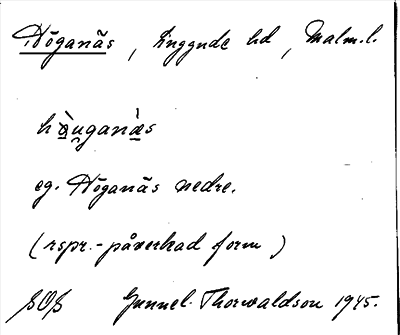 Höganäs, Luggude hd, Malm. l.
hæ̀u̯ganæ̀s
eg. Höganäs nedre.
(rspr.-påverkad form)
SOS Gunnel Thorwaldson 1945.